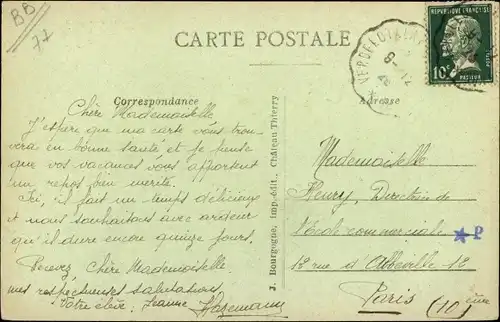 BB
77
CARTE POSTALE
RÉPUBLIQUE FRANÇAISE
10c
PASTEUR
Correspondance
Adresse
Chère Mademoiselle
J'espère que ma carte vous trou-
vera en bonne santé et je pense
que vos vacances vous apportent
un repos bien mérité.
Ici, il fait un temps délicieux
et nous souhaitons avec ardeur
qu'il dure encore quinze jours.
Recevez, Chère Mademoiselle,
mes respectueuses salutations.
Votre élève, Jeanne Hagemann
J. Bourgogne, imp.-édit., Château-Thierry
Mademoiselle
Fleury, Directrice de
l'Ecole commerciale
★ P
12 rue d'Abbeville 12
Paris (10ème